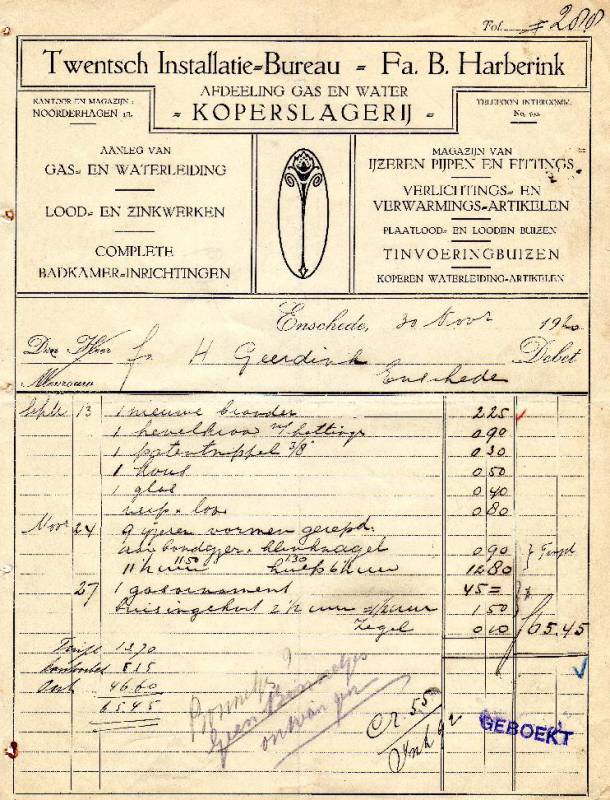 Fol. 288
Twentsch Installatie=Bureau - Fa. B. Harberink
AFDEELING GAS EN WATER
KANTOOR EN MAGAZIJN:
NOORDERHAGEN
- KOPERSLAGERIJ -
TELEFOON INTERCOMM.
No.
AANLEG VAN
GAS= EN WATERLEIDING
LOOD= EN ZINKWERKEN
COMPLETE
BADKAMER=INRICHTINGEN
MAGAZIJN VAN
IJZEREN PIJPEN EN FITTINGS
VERLICHTINGS= EN
VERWARMINGS=ARTIKELEN
PLAATLOOD= EN LOODEN BUIZEN
TINVOERINGBUIZEN
KOPEREN WATERLEIDING=ARTIKELEN
Enschede, 30 Novr 1920
Den Heer
Mevrouw
fa. H Geerdink Debet
Enschede
Septr 13 1 nieuwe brander 2 25
1 hevelkraan 0 90
1 patentnippel 3/8" 0 30
1 kous 0 50
1 glas 0 40
loon 0 80
Novr 24 9 ijzeren vormen gerepd.
klinknagel 0 90
11½ uur 1 50 6½ uur 1 30 12 80
27 1 gasornament 45 =
2½ uur 1 50
Zegel 0 10 65.45
13.70
5.15
46.60
65.45
Bonnetje?
Geen Bonnetjes
ontvangen
Cr. 55
Ink 92
GEBOEKT